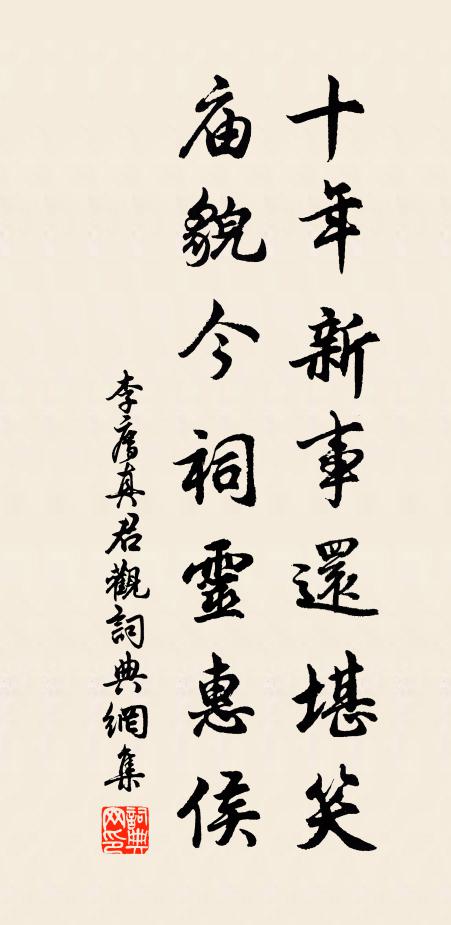 十年新事還堪笑
庙貌今祠靈惠侯
李廌真君觀詞典網集
詞典网印